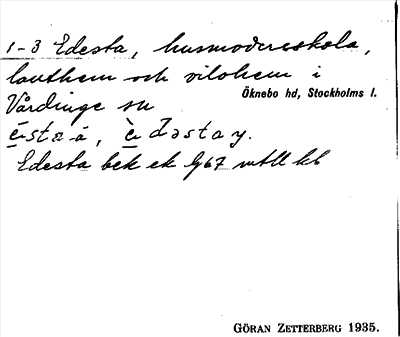 1-3 Edesta, husmodersskola,
lanthem och vilohem i
Vårdinge sn Öknebo hd, Stockholms l.
Edesta bek ek
GÖRAN ZETTERBERG 1935.